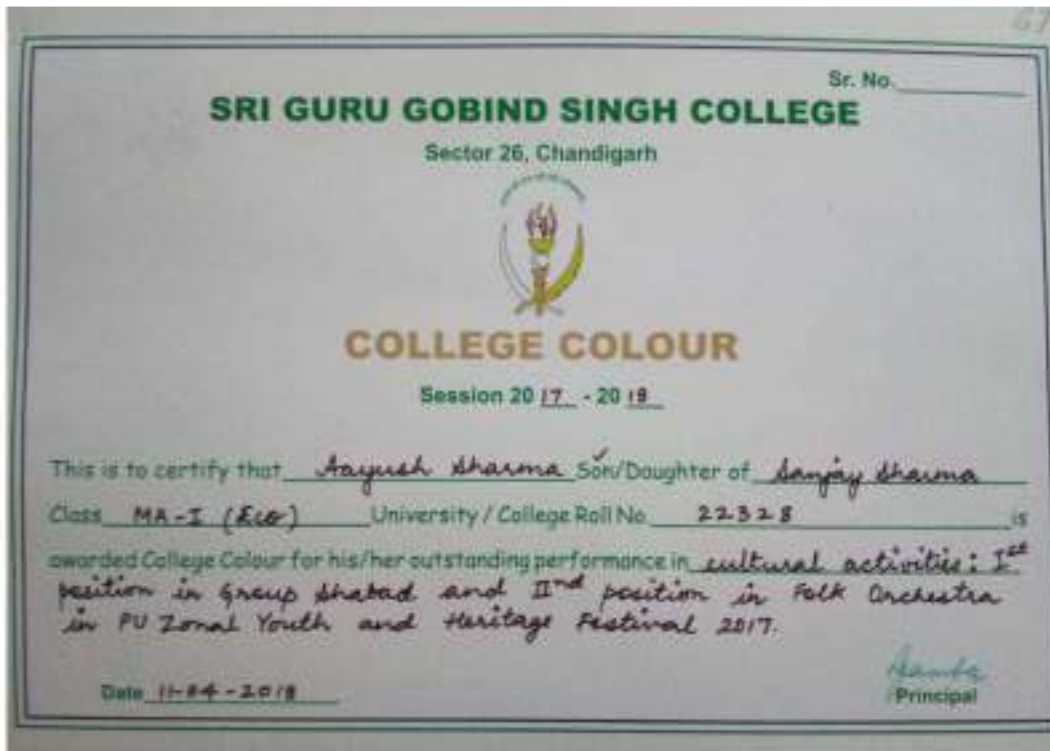 67
Sr. No.
SRI GURU GOBIND SINGH COLLEGE
Sector 26, Chandigarh
COLLEGE COLOUR
Session 20 17 - 20 18
This is to certify that Aayush Sharma Son/Daughter of Sanjay Sharma
Class MA-I (Eco) University / College Roll No. 22328 is
awarded College Colour for his/her outstanding performance in cultural activities: Ist
position in Group Shabad and IInd position in Folk Orchestra
in PU Zonal Youth and Heritage Festival 2017.
Date 11-04-2018
Principal